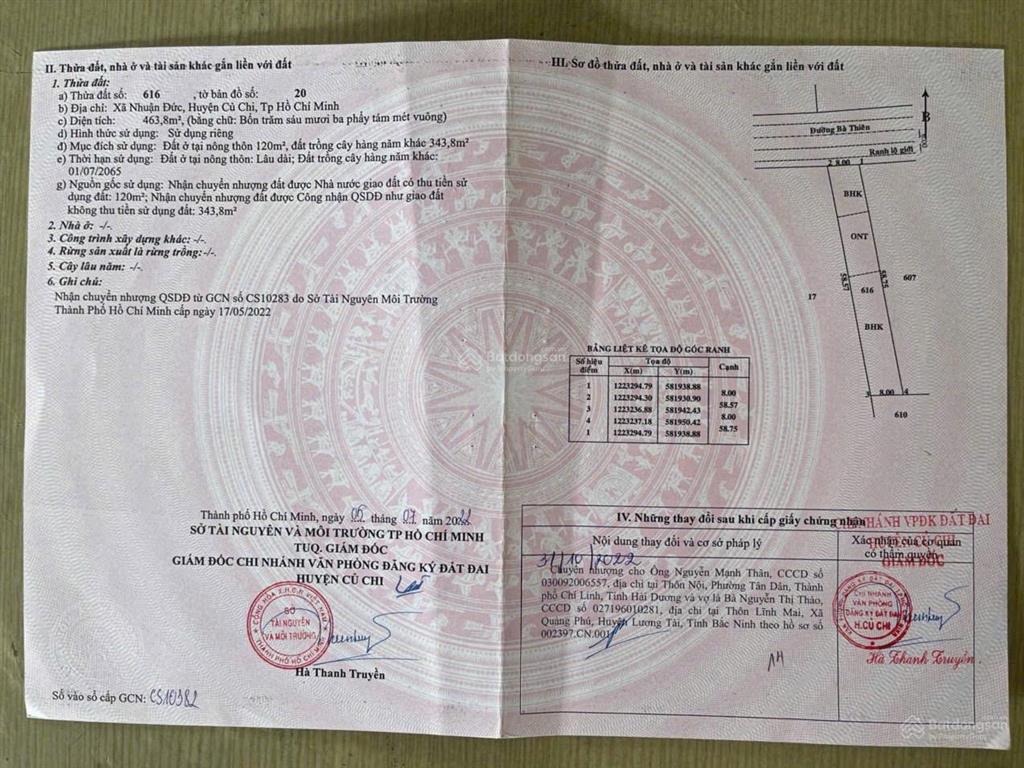 II. Thửa đất, nhà ở và tài sản khác gắn liền với đất
1. Thửa đất:
a) Thửa đất số: 616 , tờ bản đồ số: 20
b) Địa chỉ: Xã Nhuận Đức, Huyện Củ Chi, Tp Hồ Chí Minh
c) Diện tích: 463,8m², (bằng chữ: Bốn trăm sáu mươi ba phẩy tám mét vuông)
d) Hình thức sử dụng: Sử dụng riêng
đ) Mục đích sử dụng: Đất ở tại nông thôn 120m², đất trồng cây hàng năm khác 343,8m²
e) Thời hạn sử dụng: Đất ở tại nông thôn: Lâu dài; Đất trồng cây hàng năm khác:
01/07/2065
g) Nguồn gốc sử dụng: Nhận chuyển nhượng đất được Nhà nước giao đất có thu tiền sử
dụng đất: 120m²; Nhận chuyển nhượng đất được Công nhận QSDĐ như giao đất
không thu tiền sử dụng đất: 343,8m²
2. Nhà ở: -/-.
3. Công trình xây dựng khác: -/-.
4. Rừng sản xuất là rừng trồng:-/-.
5. Cây lâu năm: -/-.
6. Ghi chú:
Nhận chuyển nhượng QSDĐ từ GCN số CS10283 do Sở Tài Nguyên Môi Trường
Thành Phố Hồ Chí Minh cấp ngày 17/05/2022
Thành phố Hồ Chí Minh, ngày 05 tháng 07 năm 2022
SỞ TÀI NGUYÊN VÀ MÔI TRƯỜNG TP HỒ CHÍ MINH
TUQ. GIÁM ĐỐC
GIÁM ĐỐC CHI NHÁNH VĂN PHÒNG ĐĂNG KÝ ĐẤT ĐAI
HUYỆN CỦ CHI
CỘNG HÒA X.H.C.N VIỆT NAM
SỞ
TÀI NGUYÊN
VÀ MÔI TRƯỜNG
THÀNH PHỐ HỒ CHÍ MINH
Hà Thanh Truyền
Số vào sổ cấp GCN: CS10382
III. Sơ đồ thửa đất, nhà ở và tài sản khác gắn liền với đất
B
Đường Bà Thiên
Ranh lộ giới
2 8.00 1
BHK
ONT
58.57
58.75
607
616
17
BHK
3 8.00 4
610
BẢNG LIỆT KÊ TỌA ĐỘ GÓC RANH
Số hiệu điểm Tọa độ Cạnh
X(m) Y(m)
1 1223294.79 581938.88
8.00
2 1223294.30 581930.90
58.57
3 1223236.88 581942.43
8.00
4 1223237.18 581950.42
58.75
1 1223294.79 581938.88
IV. Những thay đổi sau khi cấp giấy chứng nhận
Nội dung thay đổi và cơ sở pháp lý
Xác nhận của cơ quan
có thẩm quyền
CHI NHÁNH VPĐK ĐẤT ĐAI
HUYỆN CỦ CHI
GIÁM ĐỐC
31/10/2022
Chuyển nhượng cho Ông Nguyễn Mạnh Thân, CCCD số
030092006557, địa chỉ tại Thôn Nội, Phường Tân Dân, Thành
phố Chí Linh, Tỉnh Hải Dương và vợ là Bà Nguyễn Thị Thảo,
CCCD số 027196010281, địa chỉ tại Thôn Lĩnh Mai, Xã
Quảng Phú, Huyện Lương Tài, Tỉnh Bắc Ninh theo hồ sơ số
002397.CN.001
CHI NHÁNH
VĂN PHÒNG
ĐĂNG KÝ ĐẤT ĐAI
H.CỦ CHI
Hà Thanh Truyền
Batdongsan
by PropertyGuru
Batdongsan
by PropertyGuru